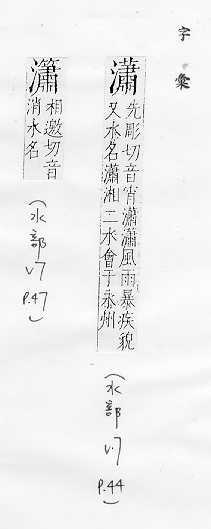 字彙
瀟
先彫切音宵瀟瀟風雨暴疾貌
又水名瀟湘二水會于永州
(水部 V.7
P.44)
相邀切音
消水名
(水部 V.7
P.47)